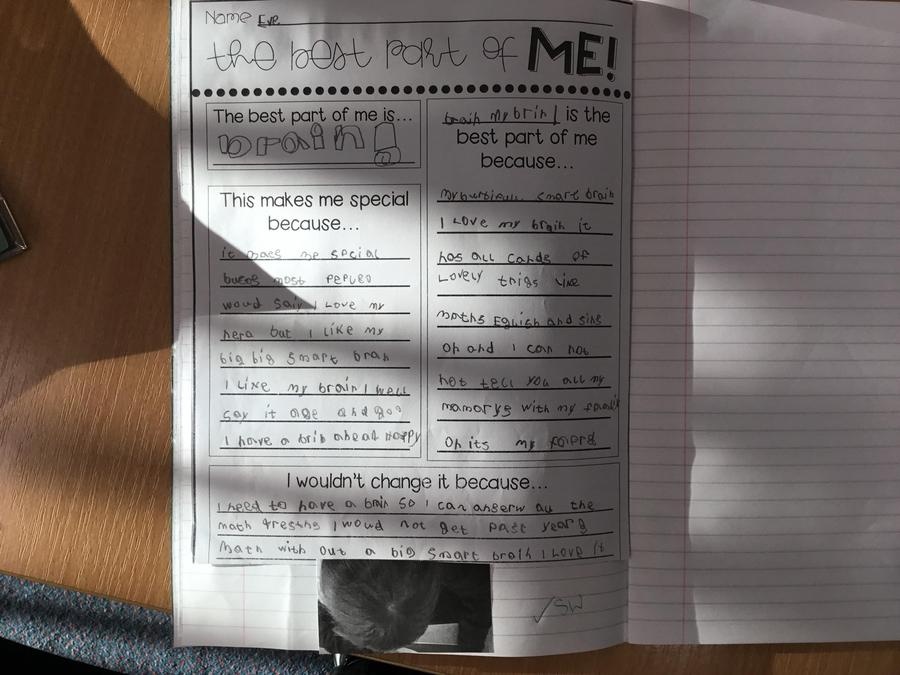 Name Eve
the best part of ME!
The best part of me is...
brain!
This makes me special
because...
it maes me special
most
woud saiy I Love my
hera but I LiKe my
big big smart bran
I Like my brain I well
say it age and
I have a brib ahead Happy
brain my brin is the
best part of me
because...
smart brain
I Love my brain it
has all cands of
LoveLy thigs Like
maths EgLish and sins
Oh and I can not
not tell you all my
mamarys with my
Oh its my
I wouldn't change it because...
I need to have a brain so I can anserw all the
math I woud not get past year
math with out a big smart brain I Love it
SW